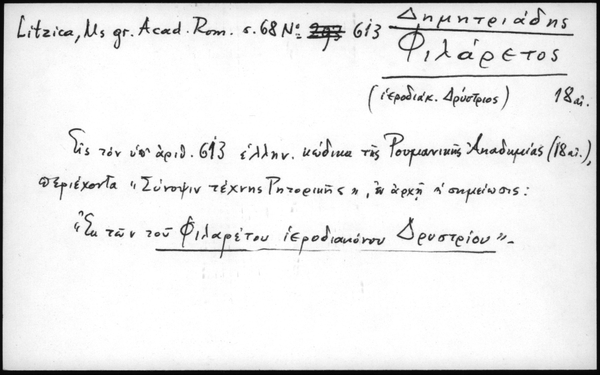 Litzica, Ms gr. Acad. Rom. σ. 68 Nο 613
Δημητριάδης
Φιλάρετος
(ἱεροδιάκ. Δρύστριος) 18 αἰ.
Εἰς τὸν ὑπ' ἀριθ. 613 ἑλλην. κώδικα τῆς Ρουμανικῆς Ἀκαδημίας (18 αἰ.),
περιέχοντα "Σύνοψιν τέχνης Ρητορικῆς", ἐν ἀρχῇ ἡ σημείωσις:
"Ἐκ τῶν τοῦ Φιλαρέτου ἱεροδιακόνου Δρυστρίου" –